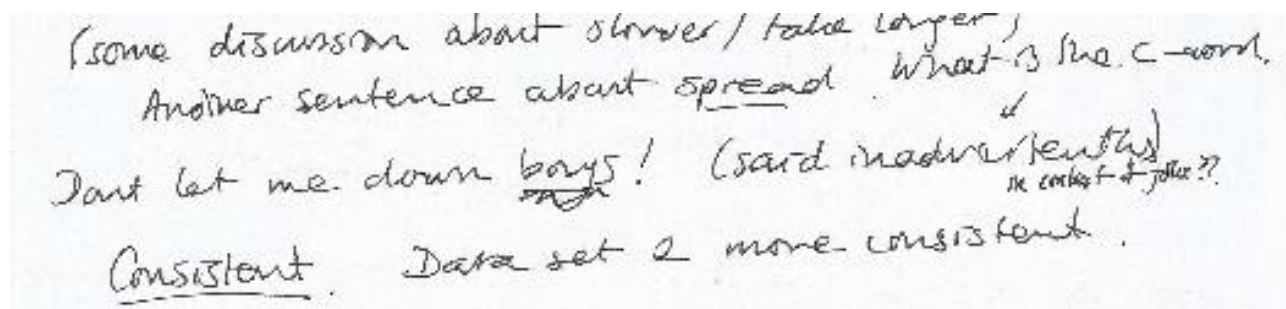 (some discussion about slower / take longer)
Another sentence about spread. What is the C-word.
Dont let me down boys! (said inadvertently)
in context of joke??
Consistent. Data set 2 more consistent.